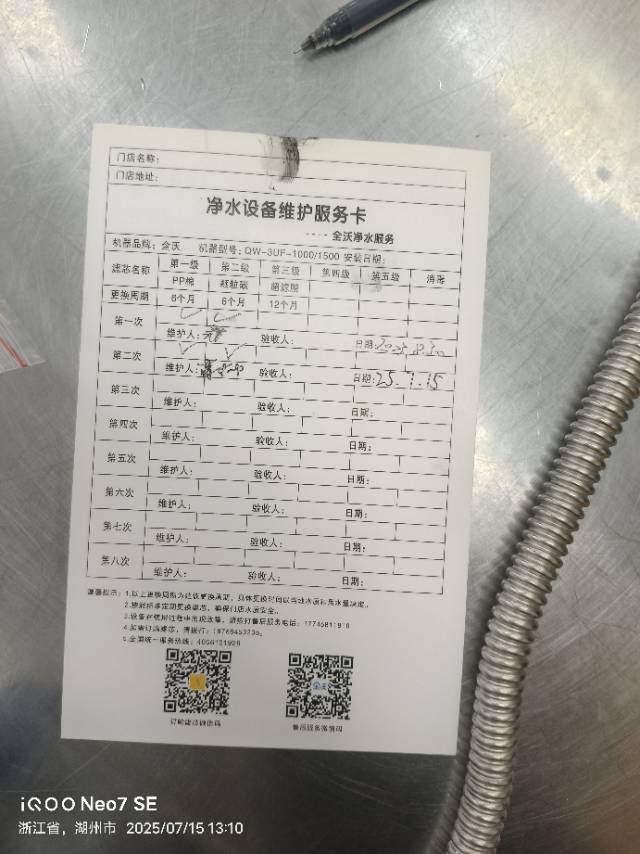 门店名称：
门店地址：
净水设备维护服务卡
---- 全沃净水服务
机器品牌：全沃 机器型号：QW-3UF-1000/1500 安装日期：
滤芯名称 第一级 第二级 第三级 第四级 第五级 消毒
PP棉 颗粒碳 超滤膜
更换周期 6个月 6个月 12个月
第一次 ✓ ✓
维护人： 验收人： 日期：
第二次 ✓ ✓
维护人： 验收人： 日期：25.7.15
第三次
维护人： 验收人： 日期：
第四次
维护人： 验收人： 日期：
第五次
维护人： 验收人： 日期：
第六次
维护人： 验收人： 日期：
第七次
维护人： 验收人： 日期：
第八次
维护人： 验收人： 日期：
温馨提示：1.以上更换周期为建议更换周期，具体更换时间以当地水质和用水量决定。
2.请您按季定期更换滤芯，确保门店水质安全。
3.设备在使用过程中出现故障，请拨打售后服务电话：
4.如需订购滤芯，请拨打：
5.全国统一服务热线：
订购滤芯微信码 售后服务微信码
iQOO Neo7 SE
浙江省，湖州市 2025/07/15 13:10